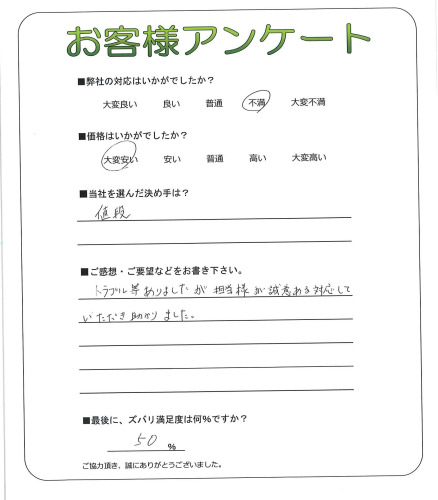 お客様アンケート
■弊社の対応はいかがでしたか?
大変良い 良い 普通 不満 大変不満
■価格はいかがでしたか?
大変安い 安い 普通 高い 大変高い
■当社を選んだ決め手は?
値段
■ご感想・ご要望などをお書き下さい。
トラブル等ありましたが担当様が誠意ある対応して
いただき助かりました。
■最後に、ズバリ満足度は何%ですか?
50 %
ご協力頂き、誠にありがとうございました。